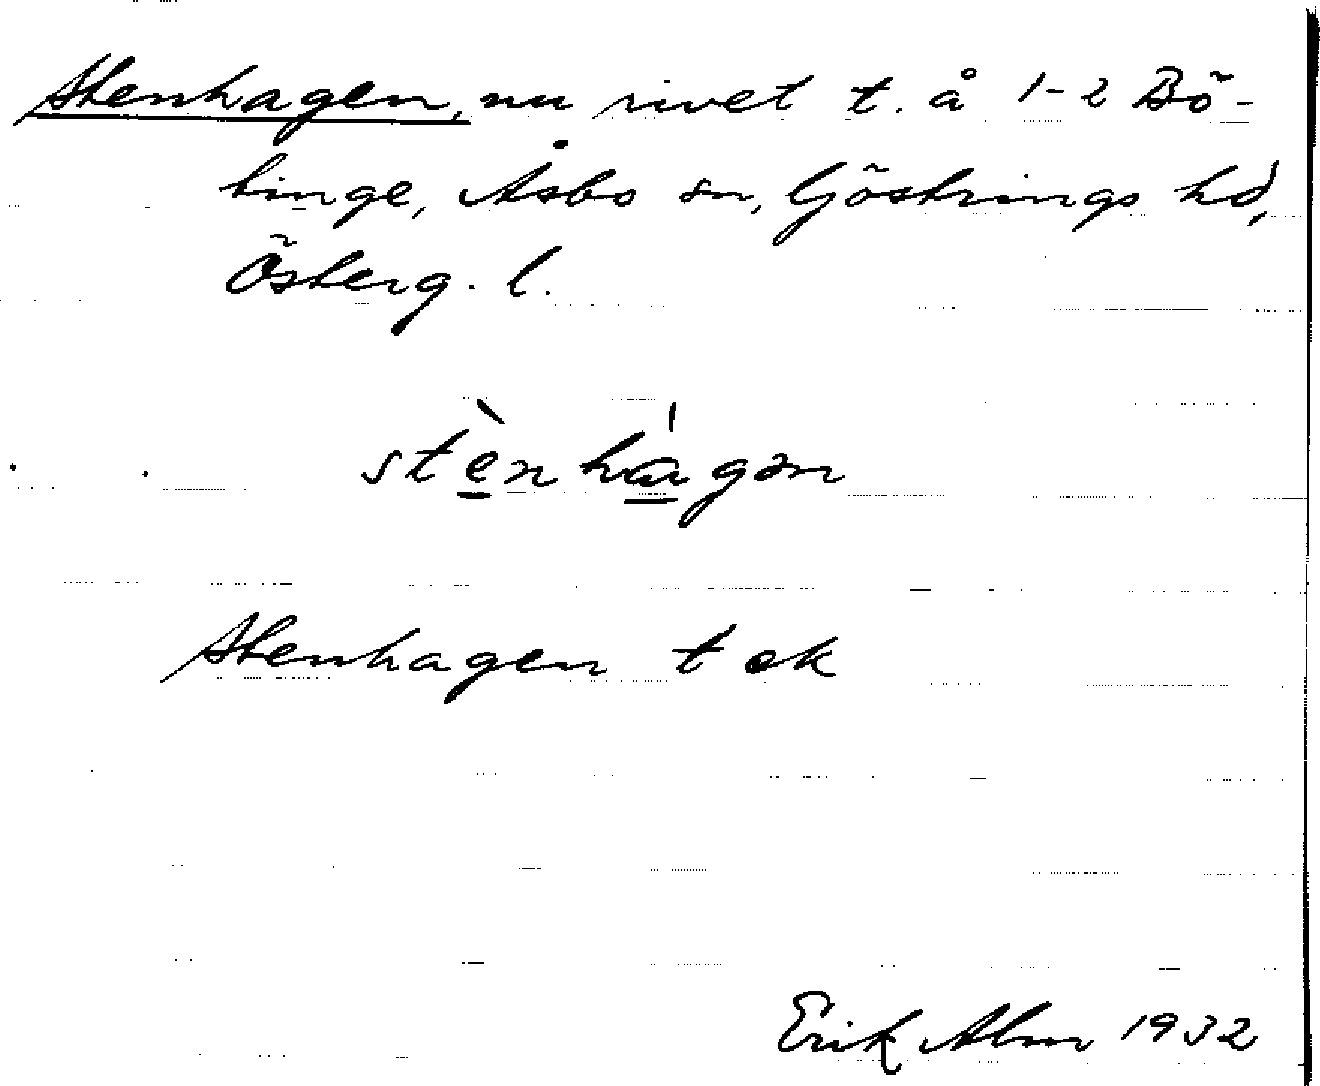 Stenhagen, nu rivet t. å 1-2 Bö-
tinge, Åsbo sn, Göstrings hd,
Österg. l.
stènhágən
Stenhagen t ek
Erik Alm 1932